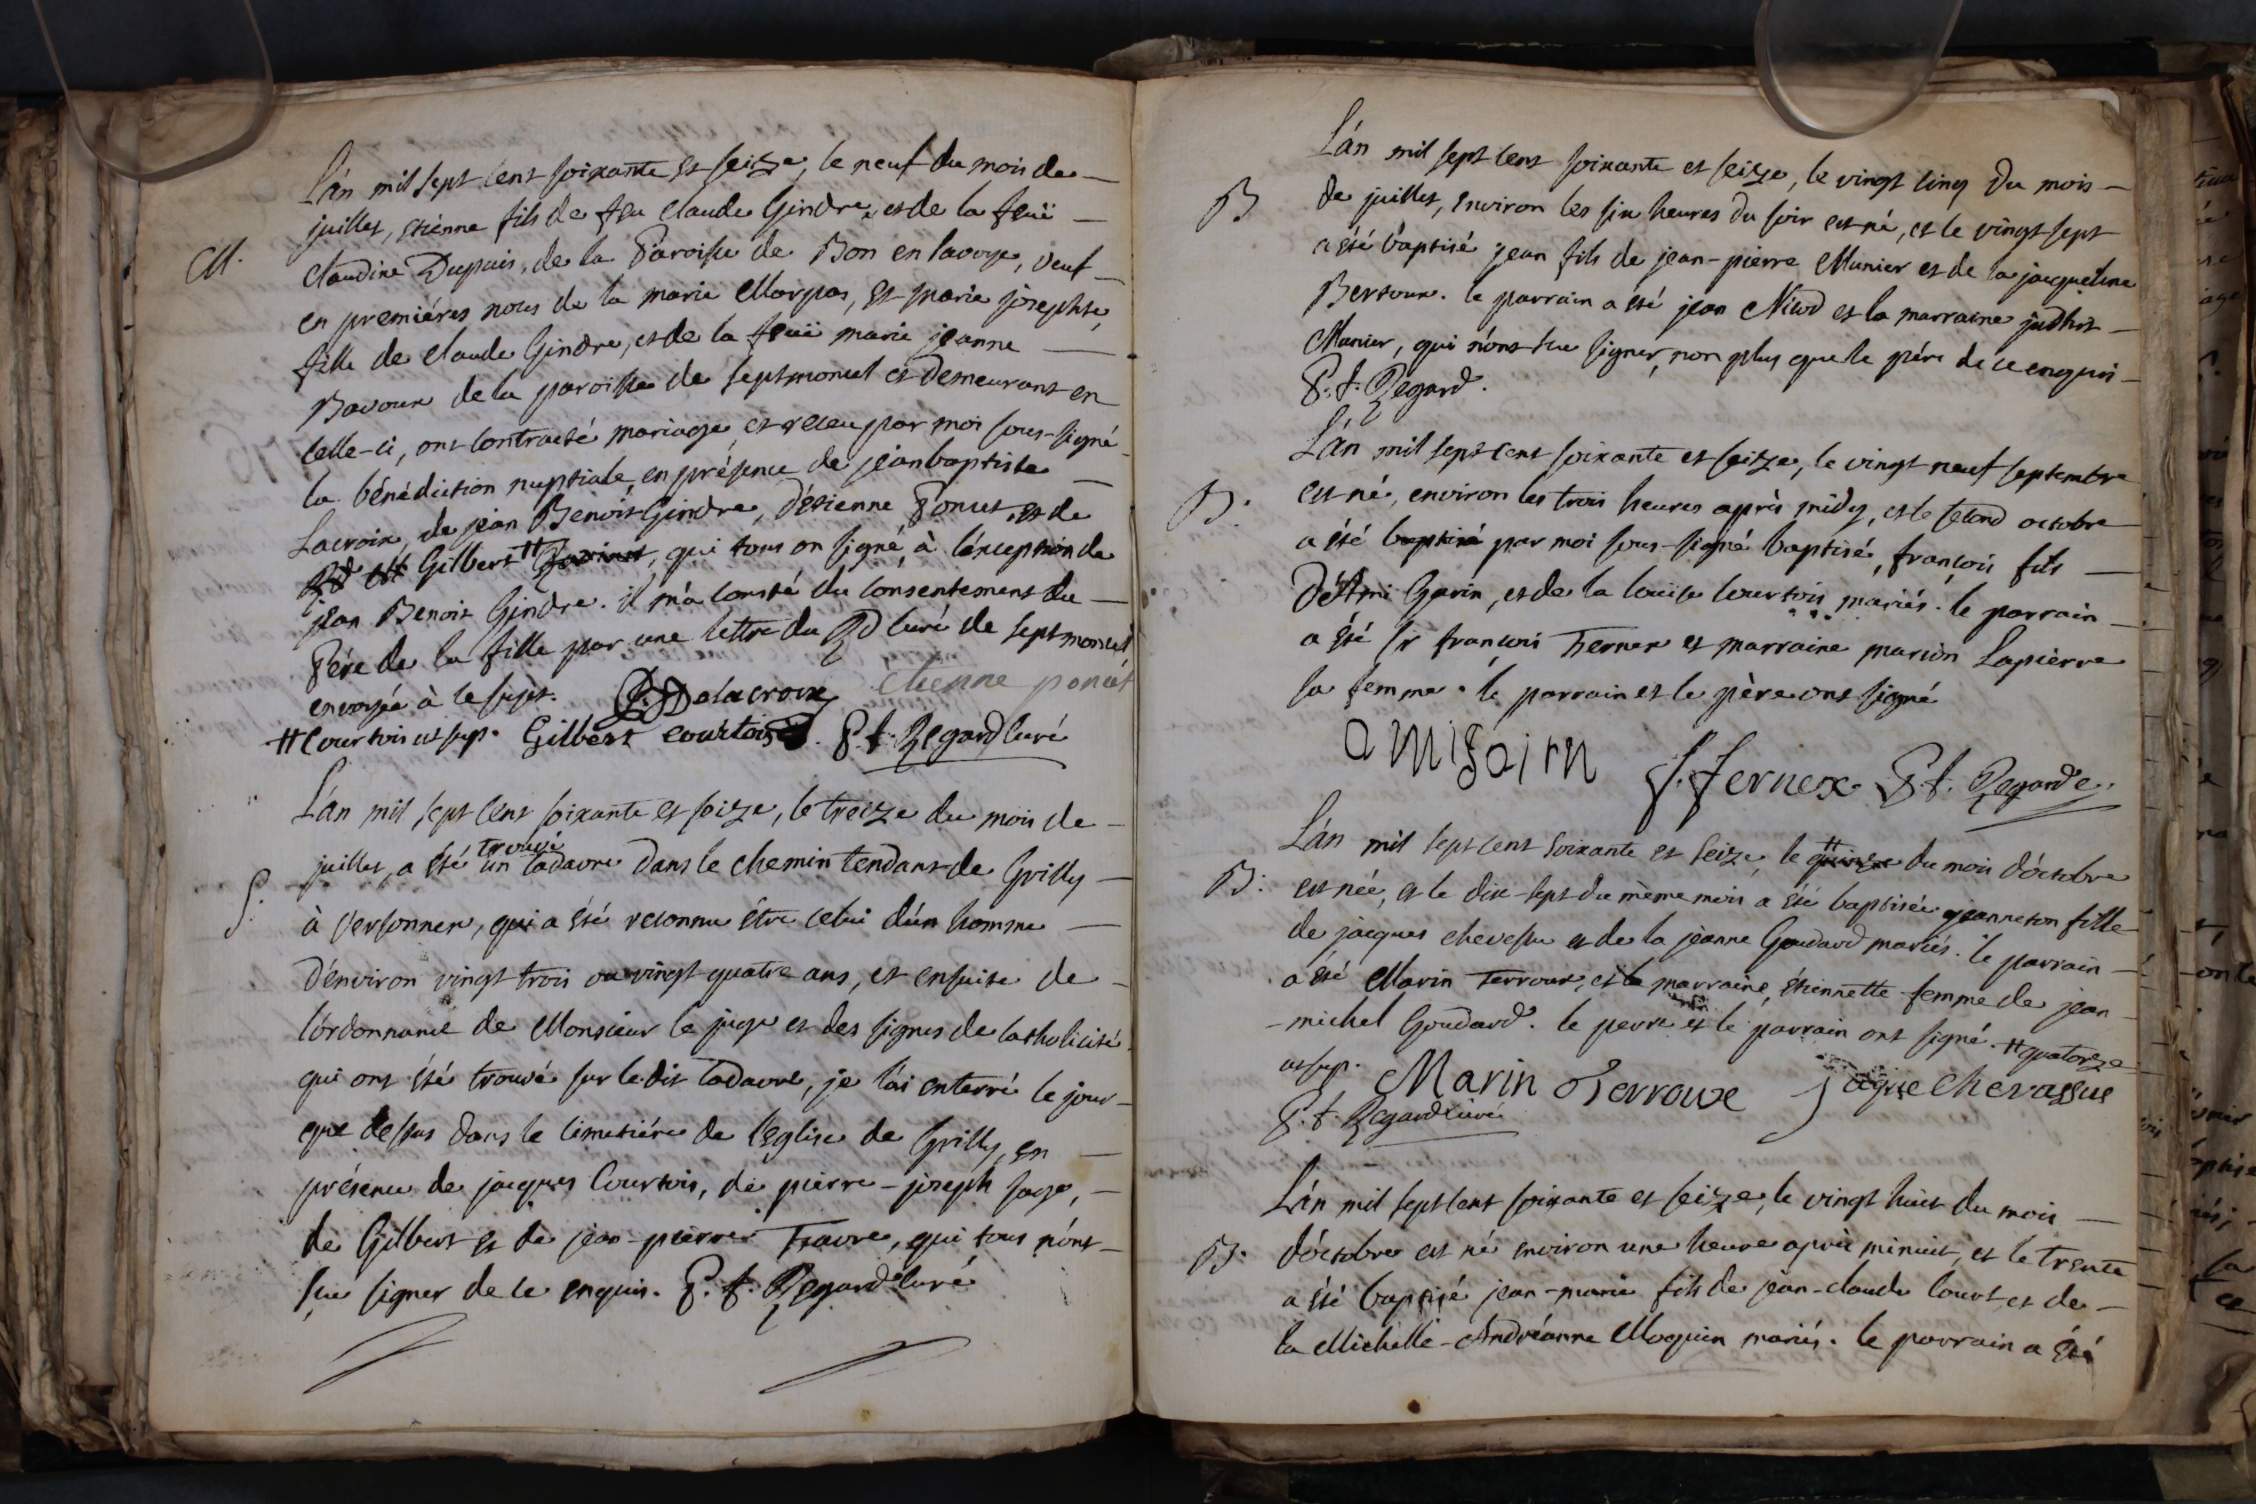 L'an mil sept cent soixante et seize, le neuf du mois de
M. juillet, etienne fils de feu claude Gindre, et de la feüe
claudine Dupuis, de la Paroisse de Bon en savoye, veuf
en premiéres noces de la marie Marpas, et marie josephte,
fille de claude Gindre, et de la feüe marie jeanne
Bavoux de la paroisse de septmoncel et demeurant en
celle-ci, ont contracté mariage et receu par moi sous-signé
la bénédiction nuptiale, en présence de jeanbaptiste
Lacroix, de jean Benoit Gindre, d'étienne Poncet, et de
Gilbert #, qui tous on signé, à l'exception de
jean Benoit Gindre. il m'a consté du consentement du
Pére de la fille par une lettre du Rd curé de septmoncel
envoyée à ce sujet. Delacroix etienne poncet
# Courtois ut sup. Gilbert courtois. P. f. Regard curé
L'an mil sept cent soixante et seize, le treize du mois de
S. juillet, a été trouvé un cadavre dans le chemin tendant de Grilly
à sersonnex, qui a été reconnu être celui d'un homme
d'environ vingt trois ou vingt quatre ans, et ensuite de
l'ordonnance de Monsieur le juge et des signes de catholicité
qui ont été trouvé sur ledit cadavre, je l'ai enterré le jour
que dessus dans le cimetiére de l'eglise de Grilly, en
présence de jacques Courtois, de pierre-joseph sage,
de Gilbert et de jean-pierre Travre, qui tous n'ont
sçu signer de ce enquis. P. f. Regard curé
L'an mil sept cent soixante et seize, le vingt cinq du mois
B de juillet, environ les six heures du soir est né, et le vingt sept
a été baptisé jean fils de jean-pierre Munier et de la jacqueline
Bertoux. le parrain a été jean Nicod et la marraine judhit
Munier, qui n'ont sçu signer, non plus que le pére de ce enquis
P. f. Regard.
L'an mil sept cent soixante et seize, le vingt neuf septembre
B. est né, environ les trois heures après midy, et le second octobre
a été baptisé par moi sous-signé baptisé, françois fils
d'Ami Gavin, et de la loüise courtois mariés. le parrain
a été sr françois Fernex et marraine marion Lapierre
sa femme. le parrain et le père ont signé
amigain f. fernex P. f. Regard.
L'an mil sept cent soixante et seize, le # quinze du mois d'octobre
B. est née, et le dix-sept du même mois a été baptisée jeanneton fille
de jacques chevassu et de la jeanne Goudard mariés. le parrain
a été Marin Terroux, et la marraine, étiennette femme de jean
-michel Goudard. le perre et le parrain ont signé. # quatorze
ut sup. Marin Terroux jaque chevassue
P. f. Regard curé
L'an mil sept cent soixante et seize, le vingt huit du mois
B. d'octobre est né environ une heure après minuit, et le trente
a été baptisé jean-marie fils de jean-claude et de
la Michelle-Andréanne Moquin mariés. le parrain a été